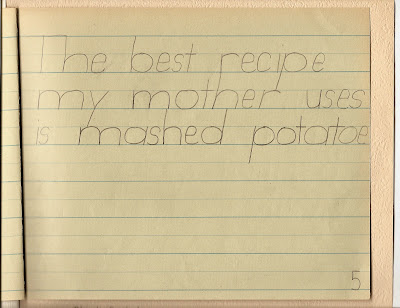 The best recipe
my mother uses
is mashed potatoe
5